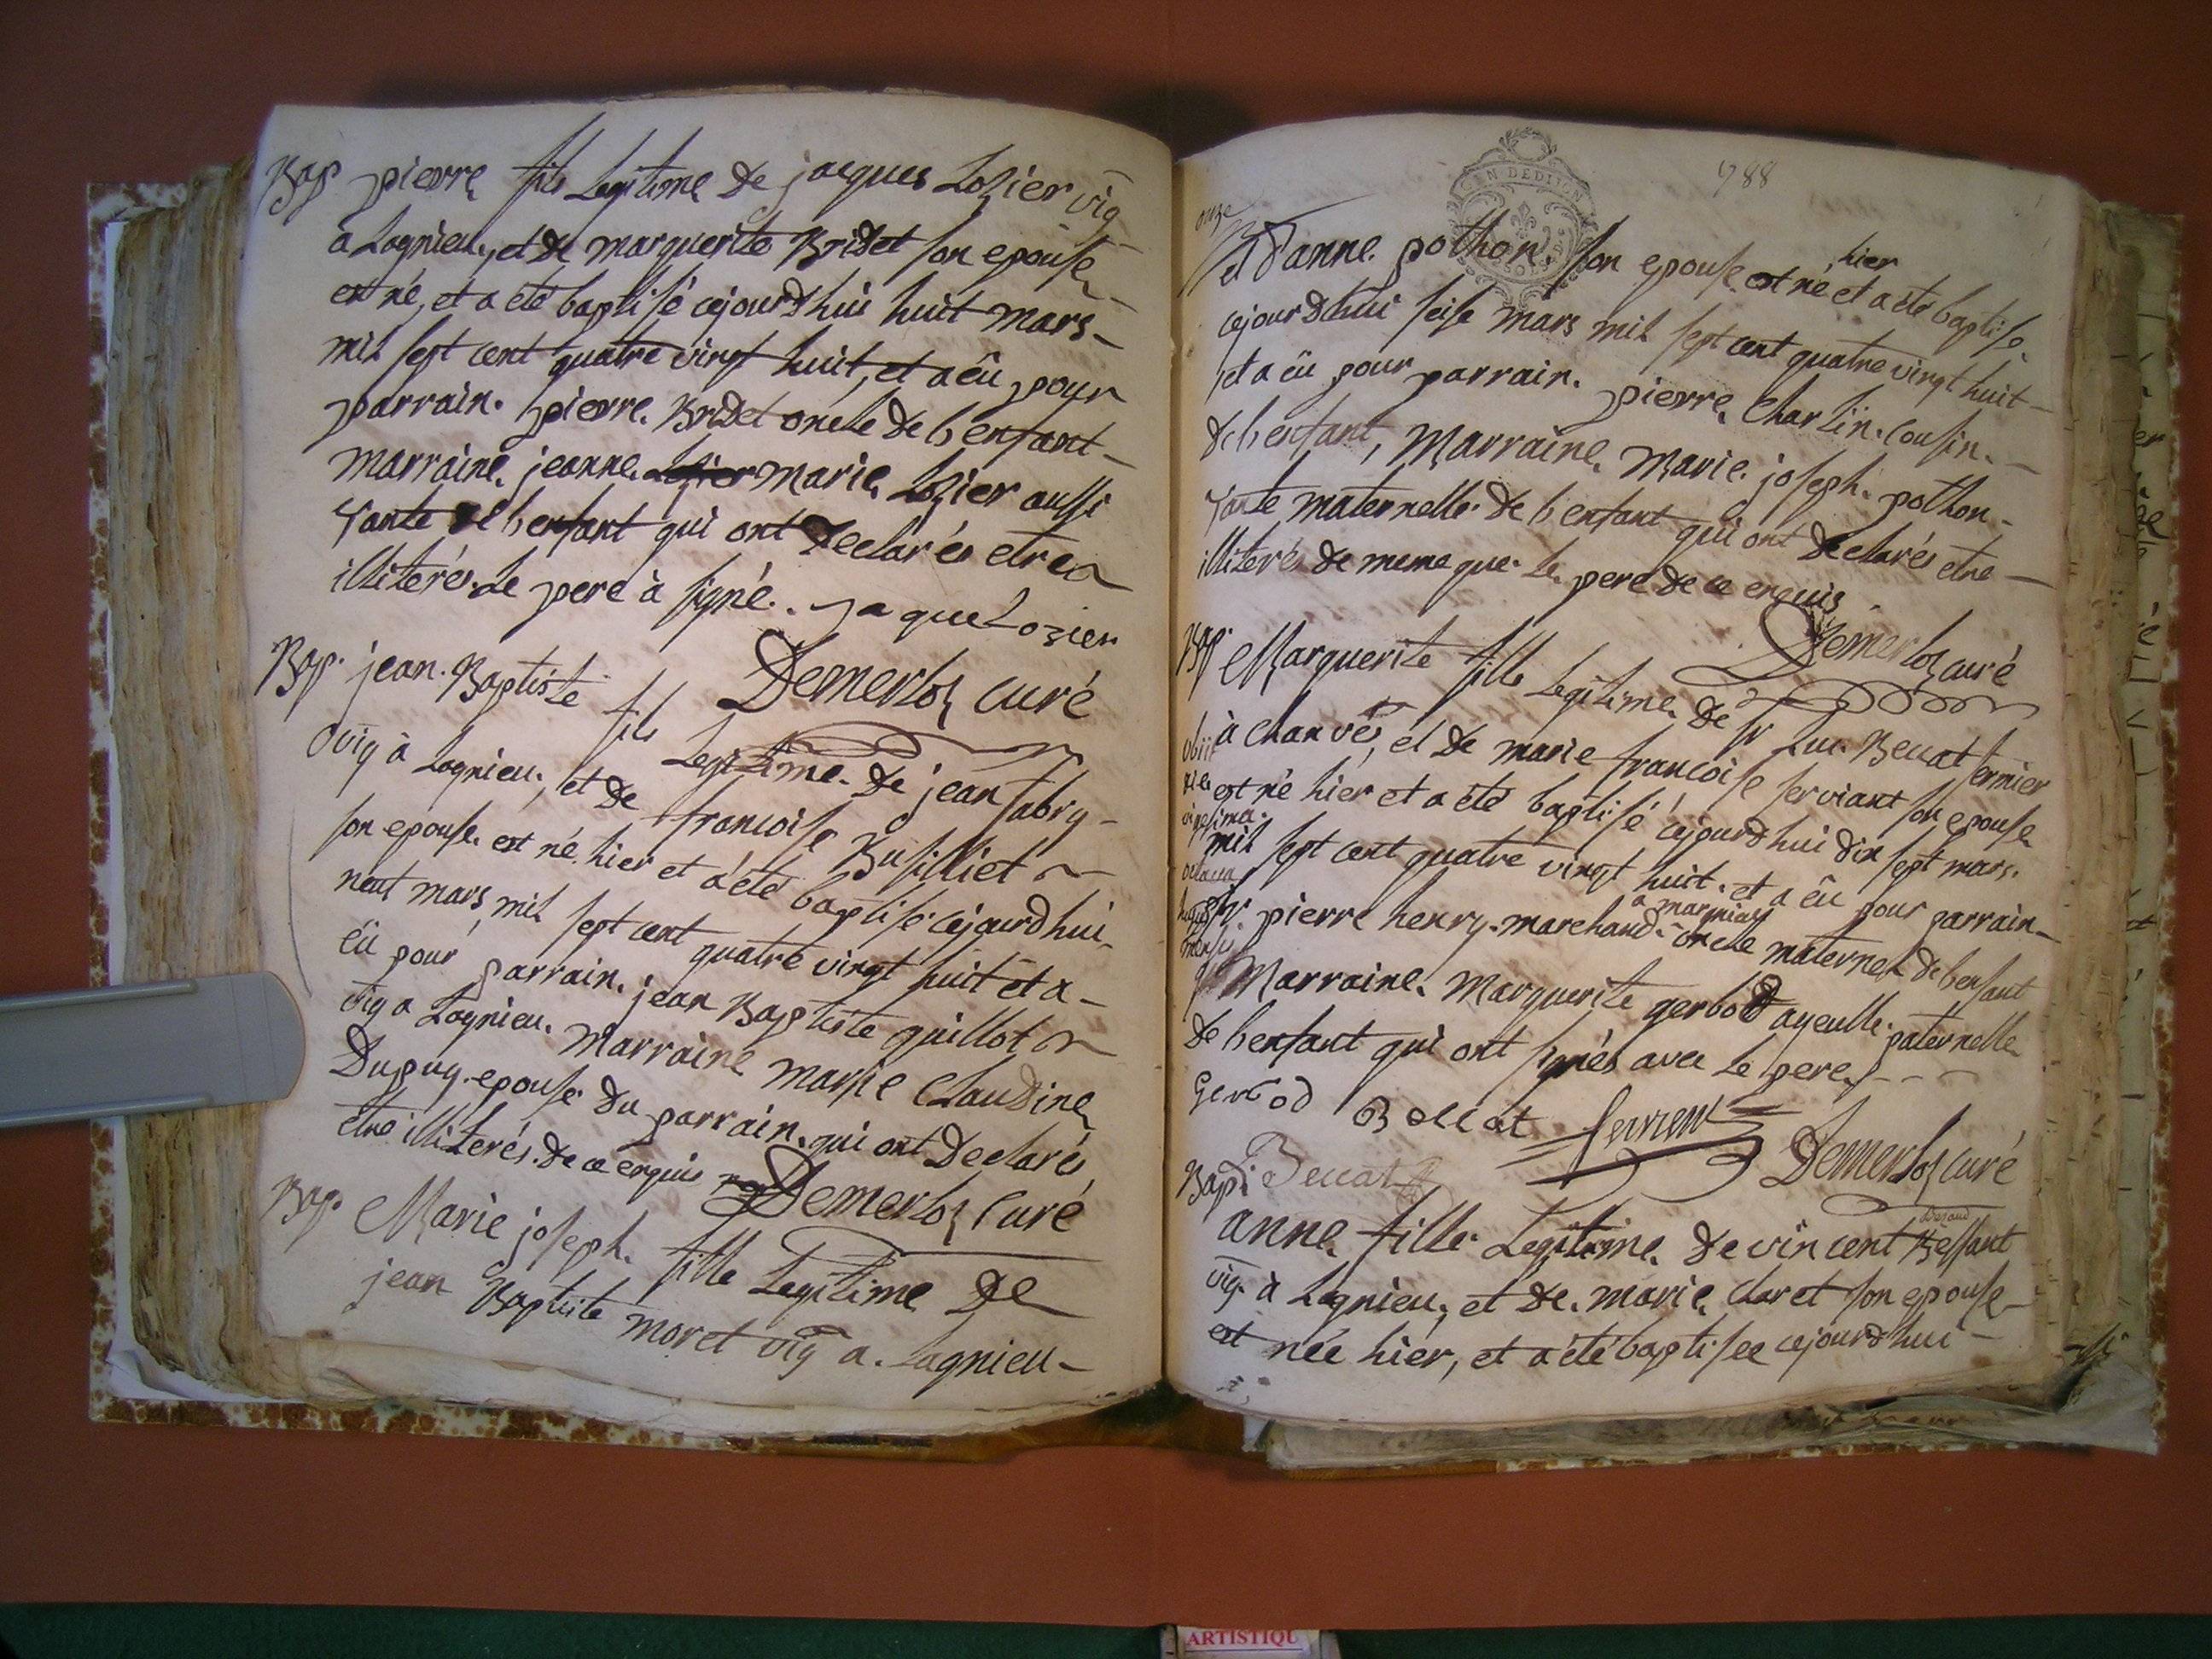 Bap pierre fils Legitime De jacques Lozier vig
à Lagnieu, et de marguerite Bridet son epouse
est né, et a été baptisé cejourd'hui huit mars
mil sept cent quatre vingt huit, et a eü pour
parrain. pierre Bridet oncle de l'enfant
marraine. jeanne marie Lozier aussi
Tante de l'enfant qui ont Declarés etre
illiterés. Le pere à signé. jaque Lozier
Demerloz curé
Bap. jean Baptiste fils Legitime de jean fabry
vig à Lagnieu, et de francoise Busilliet
son epouse est né hier et a été baptisé cejourdhui
neuf mars, mil sept cent quatre vingt huit et a
eü pour parrain. jean Baptiste guillot
vig a Lagnieu. marraine marie Claudine
Dupuy. epouse du parrain. qui ont Declarés
etre illiterés. de ce enquis
Demerloz Curé
Bap. Marie joseph. fille Legitime De
jean Baptiste moret vig a. Lagnieu
788
GEN DE DIJON
onze
et d'anne pothon. son epouse est né hier et a été baptisé
cejourdhui seise mars mil sept cent quatre vingt huit
et a eü pour parrain. pierre Charlin. Cousin.
de l'enfant, Marraine. Marie joseph. pothon
Tante maternelle de l'enfant qui ont Declarés etre
illiterés de meme que le pere de ce enquis
Demerloz curé
Bap. Marguerite fille Legitime de Sr Luc Beccat fermier
à chanvés, et De marie francoise serviant son epouse
est né hier et a été baptisé cejourdhui dix sept mars.
mil sept cent quatre vingt huit. et a eü pour parrain
Sr. pierre henry. marchand a marnias oncle maternel de l'enfant
Marraine. Marguerite gerbod ayeulle paternelle
de l'enfant qui ont signés avec le pere.
obiit
vigesima
octava
Gerbod Beccat
Demerloz curé
Beccat
Bap.
anne. fille Legitime. de vincent Bessant
vig. à Lagnieu, et de. marie. Claret son epouse
est née hier, et a été baptisee cejourd'hui
ARTISTIQU